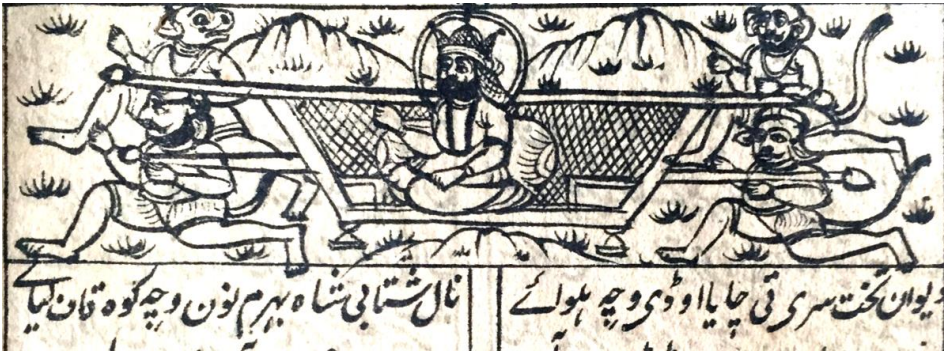 دیوان تخت سری تی چایا اوڈی وچہ ہوائے
نال شتابی شاہ بہرم نون وچہ کوہ قاف لیائے